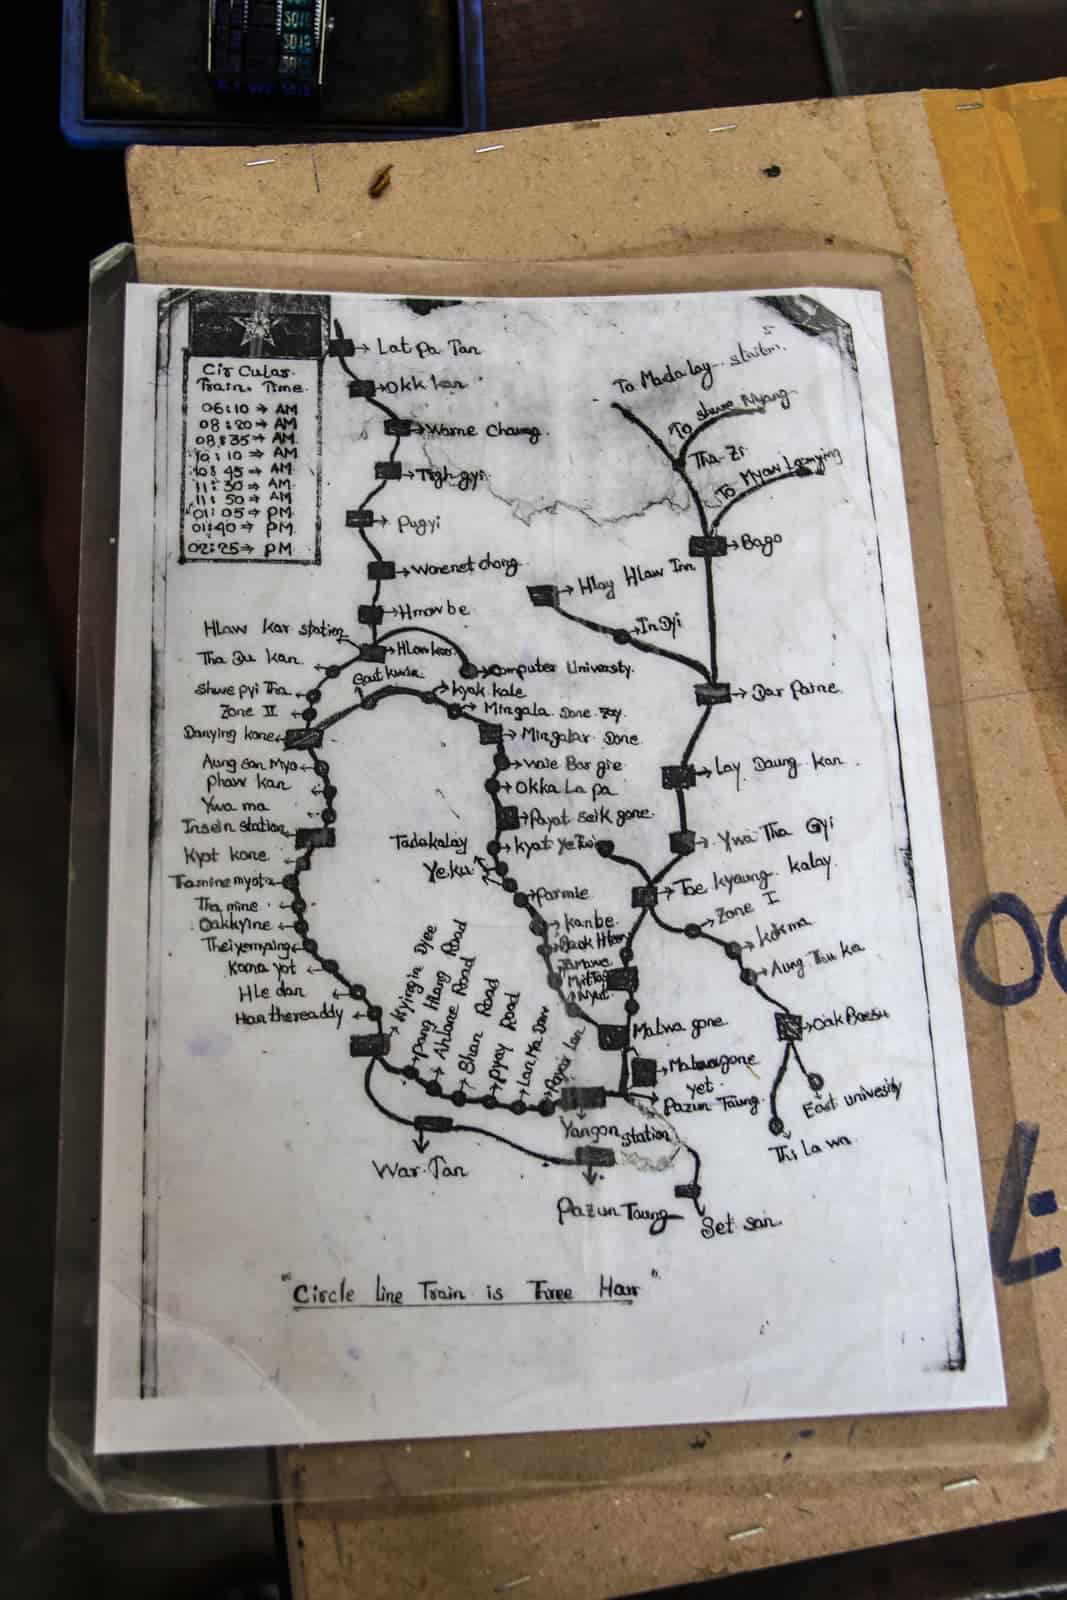 Circular
Train. Time.
06:10 → AM
08:20 → AM
08:35 → AM
10:10 → AM
10:45 → AM
11:30 → AM
11:50 → AM
01:05 → PM
01:40 → PM
02:25 → PM
Lat pa Tan
Okk kan
Warne Chaung.
Tigh gyi
Pugyi
Warenet chong
Hmawbe
Hlaw kar station
Hlawkar
Computer University.
Tha Du kan.
Shwe pyi Tha
Zone II
Danying kone
Gaut kwin
kyok kale
Mingala Done Zay.
Mingalar Done
waie Bar gie
Okka La pa
Payat seik gone.
Kyat ye Twin
Tadakalay
Ye.ku
Parmie
Kanbe.
Aung san Myo
phaw kan
Ywa ma
Insein station
Kyot kone
Tha mine myot
Tha mine
Oakkyine
Theiyemyaing
Kama yot
Hle dan
Hanthereaddy
Kyingin Djee
Pang Hlang Road
Ahlone Road
Shan Road
Pyay Road
Lan Ma Daw
Payar Lan
Yangon station
Malwa gone.
Malwagone
yet.
Pazun Taung.
War Tan
Pazun Taung
Set san.
To Madalay station.
To shwe Nyang
Tha Zi
To Myaw Lamying
Bago
Hlay Hlaw Inn
In Dyi
Dar Paine.
Lay Daung kan
Ywa Tha Gyi
Toe kyaung kalay.
Zone I
kok ma
Aung Thu ka
Oak Baesu
East univesity
This La wn
"Circle Line Train is Three Haur".